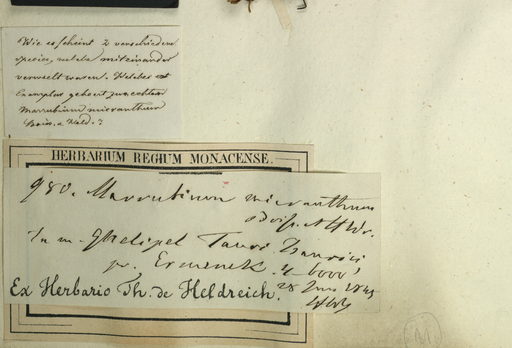 Wie es scheint 2 verschiedene
species, welche miteinander
verwechselt waren. Welches
Exemplar gehoert zum echten
Marrubium micranthum
Boiss. & Held.?
HERBARIUM REGIUM MONACENSE.
980. Marrubium micranthum
Boiss. & H
In m. Ghelipel Tauri Isaurici
pr. Ermenek. 4-6000'
28 Jun. 1845
Ex Herbario Th. de Heldreich.
M